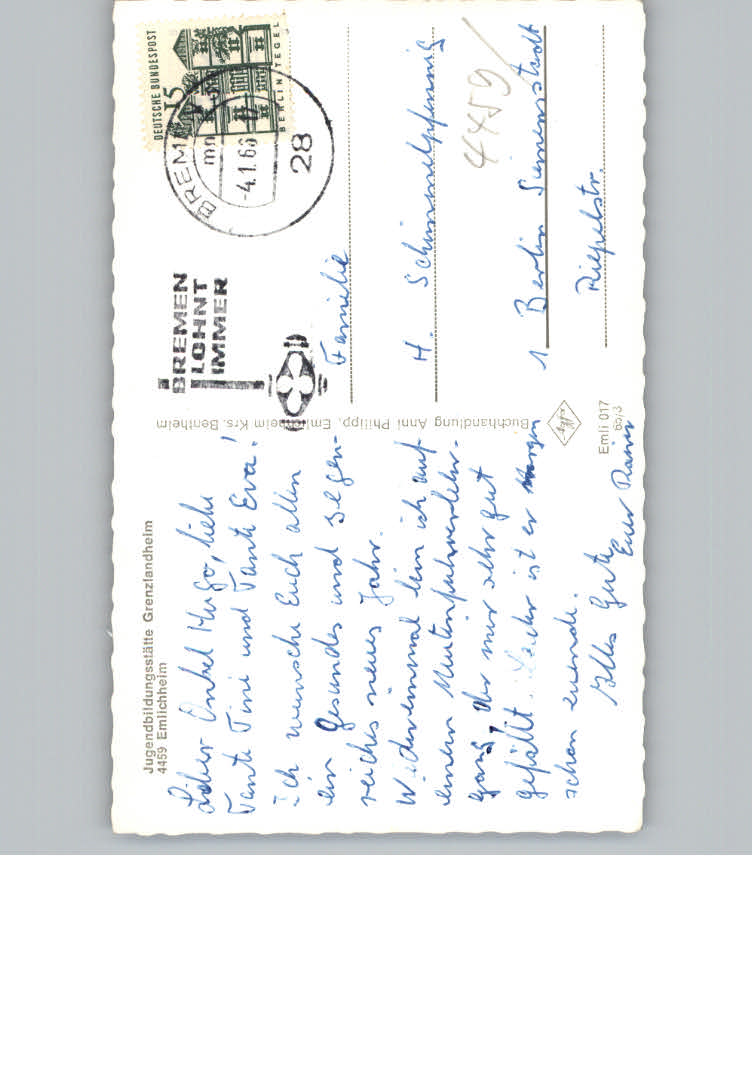 Jugendbildungsstätte Grenzlandheim
4459 Emlichheim
Lieber Onkel Hugo, liebe
Tante Tini und Tante Eva!
Ich wünsche Euch allen
ein gesundes und segen-
reiches neues Jahr.
Wiedereinmal bin ich auf
einem
gang, der mir sehr gut
gefällt. Leider ist er Morgen
schon zuende.
Alles Gute
Euer
Buchhandlung Anni Philipp, Emlichheim Krs. Bentheim
Agfa
Emli 017
65/3
DEUTSCHE BUNDESPOST
15
BERLIN TEGEL
BREMEN
-4.1.66
28
BREMEN
LOHNT
IMMER
Familie
H. Schimmelpfennig
4459
1 Berlin Siemensstadt
Riepelstr.